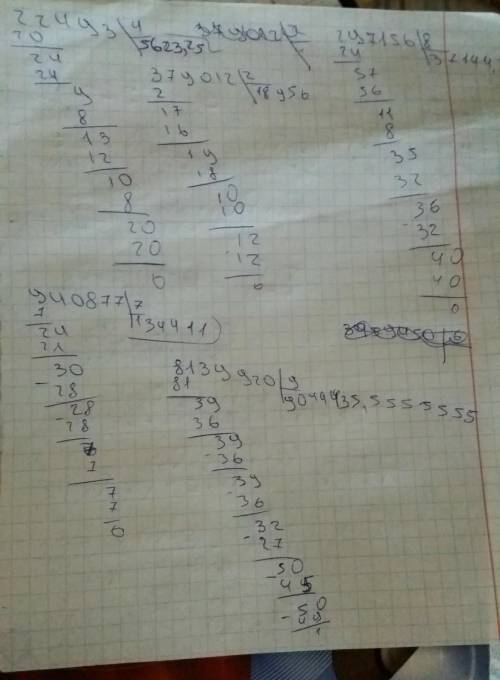 22493 | 4
20 5623,25
24
24
9
8
13
12
10
8
20
20
0
379012 | 2
2 18956
17
16
19
18
10
10
12
12
0
297156 | 8
24
57
56
11
8
35
32
36
-32
40
40
0
940877 | 7
7 134411
24
21
30
-28
28
-28
7
7
7
0
8139920 | 9
81
39
36
39
-36
39
-36
32
-27
50
-45
-50
45